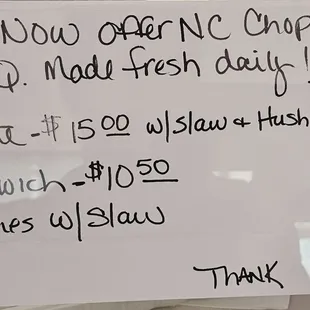 Now offer NC Chop
Q. Made fresh daily!
te - $15.00 w/Slaw & Hush
wich - $10.50
mes w/Slaw
THANK